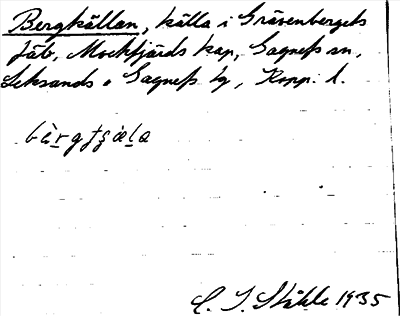 Bergkällan, källa i Grävenbergets
fäb, Mockfjärds kap, Gagnefs sn,
Leksands o Gagnefs tg, Kopp. l.
bærgtʂæla
C. I. Ståhle 1935